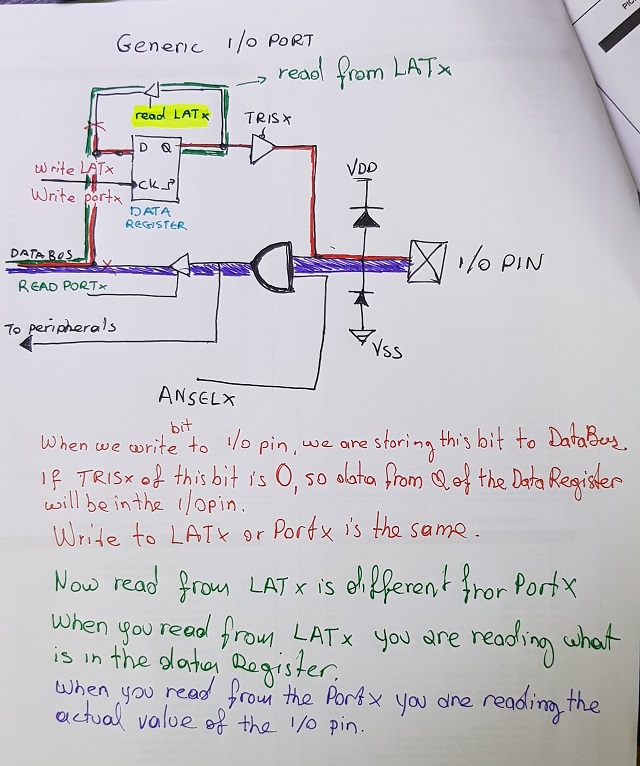 Generic I/O PORT
read from LATx
read LATx
TRISx
D Q
Write LATx
Write portx
CK
VDD
DATA
REGISTER
DATA BUS
I/O PIN
READ PORTx
To peripherals
VSS
ANSELx
When we write bit to I/O pin, we are storing this bit to DataBus
If TRISx of this bit is 0, so data from Q of the Data Register
will be in the I/O pin.
Write to LATx or Portx is the same.
Now read from LATx is different fror PortX
When you read from LATx you are reading what
is in the data Register.
When you read from the Portx you are reading the
actual value of the I/O pin.